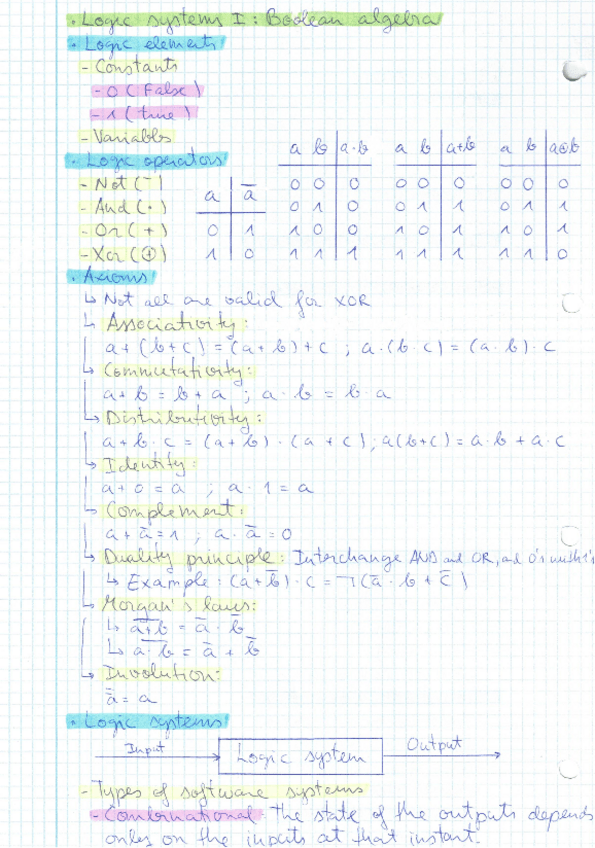 · Logic systems I : Boolean algebra
· Logic elements
- Constants
- 0 (False)
- 1 (true)
- Variables
· Logic operators
- Not (¯)
- And (·)
- Or (+)
- Xor (⊕)
a | a̅
0 | 1
1 | 0
a b | a·b
0 0 | 0
0 1 | 0
1 0 | 0
1 1 | 1
a b | a+b
0 0 | 0
0 1 | 1
1 0 | 1
1 1 | 1
a b | a⊕b
0 0 | 0
0 1 | 1
1 0 | 1
1 1 | 0
· Axioms
↳ Not all are valid for XOR
↳ Associativity:
a + (b+c) = (a+b) + c ; a·(b·c) = (a·b)·c
↳ Commutativity:
a + b = b + a ; a · b = b · a
↳ Distributivity:
a + b · c = (a+b) · (a + c) ; a(b+c) = a·b + a·c
↳ Identity:
a + 0 = a ; a · 1 = a
↳ Complement:
a + a̅ = 1 ; a · a̅ = 0
↳ Duality principle: Interchange AND and OR, and 0's with 1's
↳ Example: (a+b̅) · c = ¬(a̅ · b + c̅)
↳ Morgan's laws:
↳ a̅+̅b̅ = a̅ · b̅
↳ a̅·̅b̅ = a̅ + b̅
↳ Involution:
a̿ = a
· Logic systems
Input
Logic system
Output
- Types of software systems
- Combinational: The state of the outputs depends
only on the inputs at that instant.